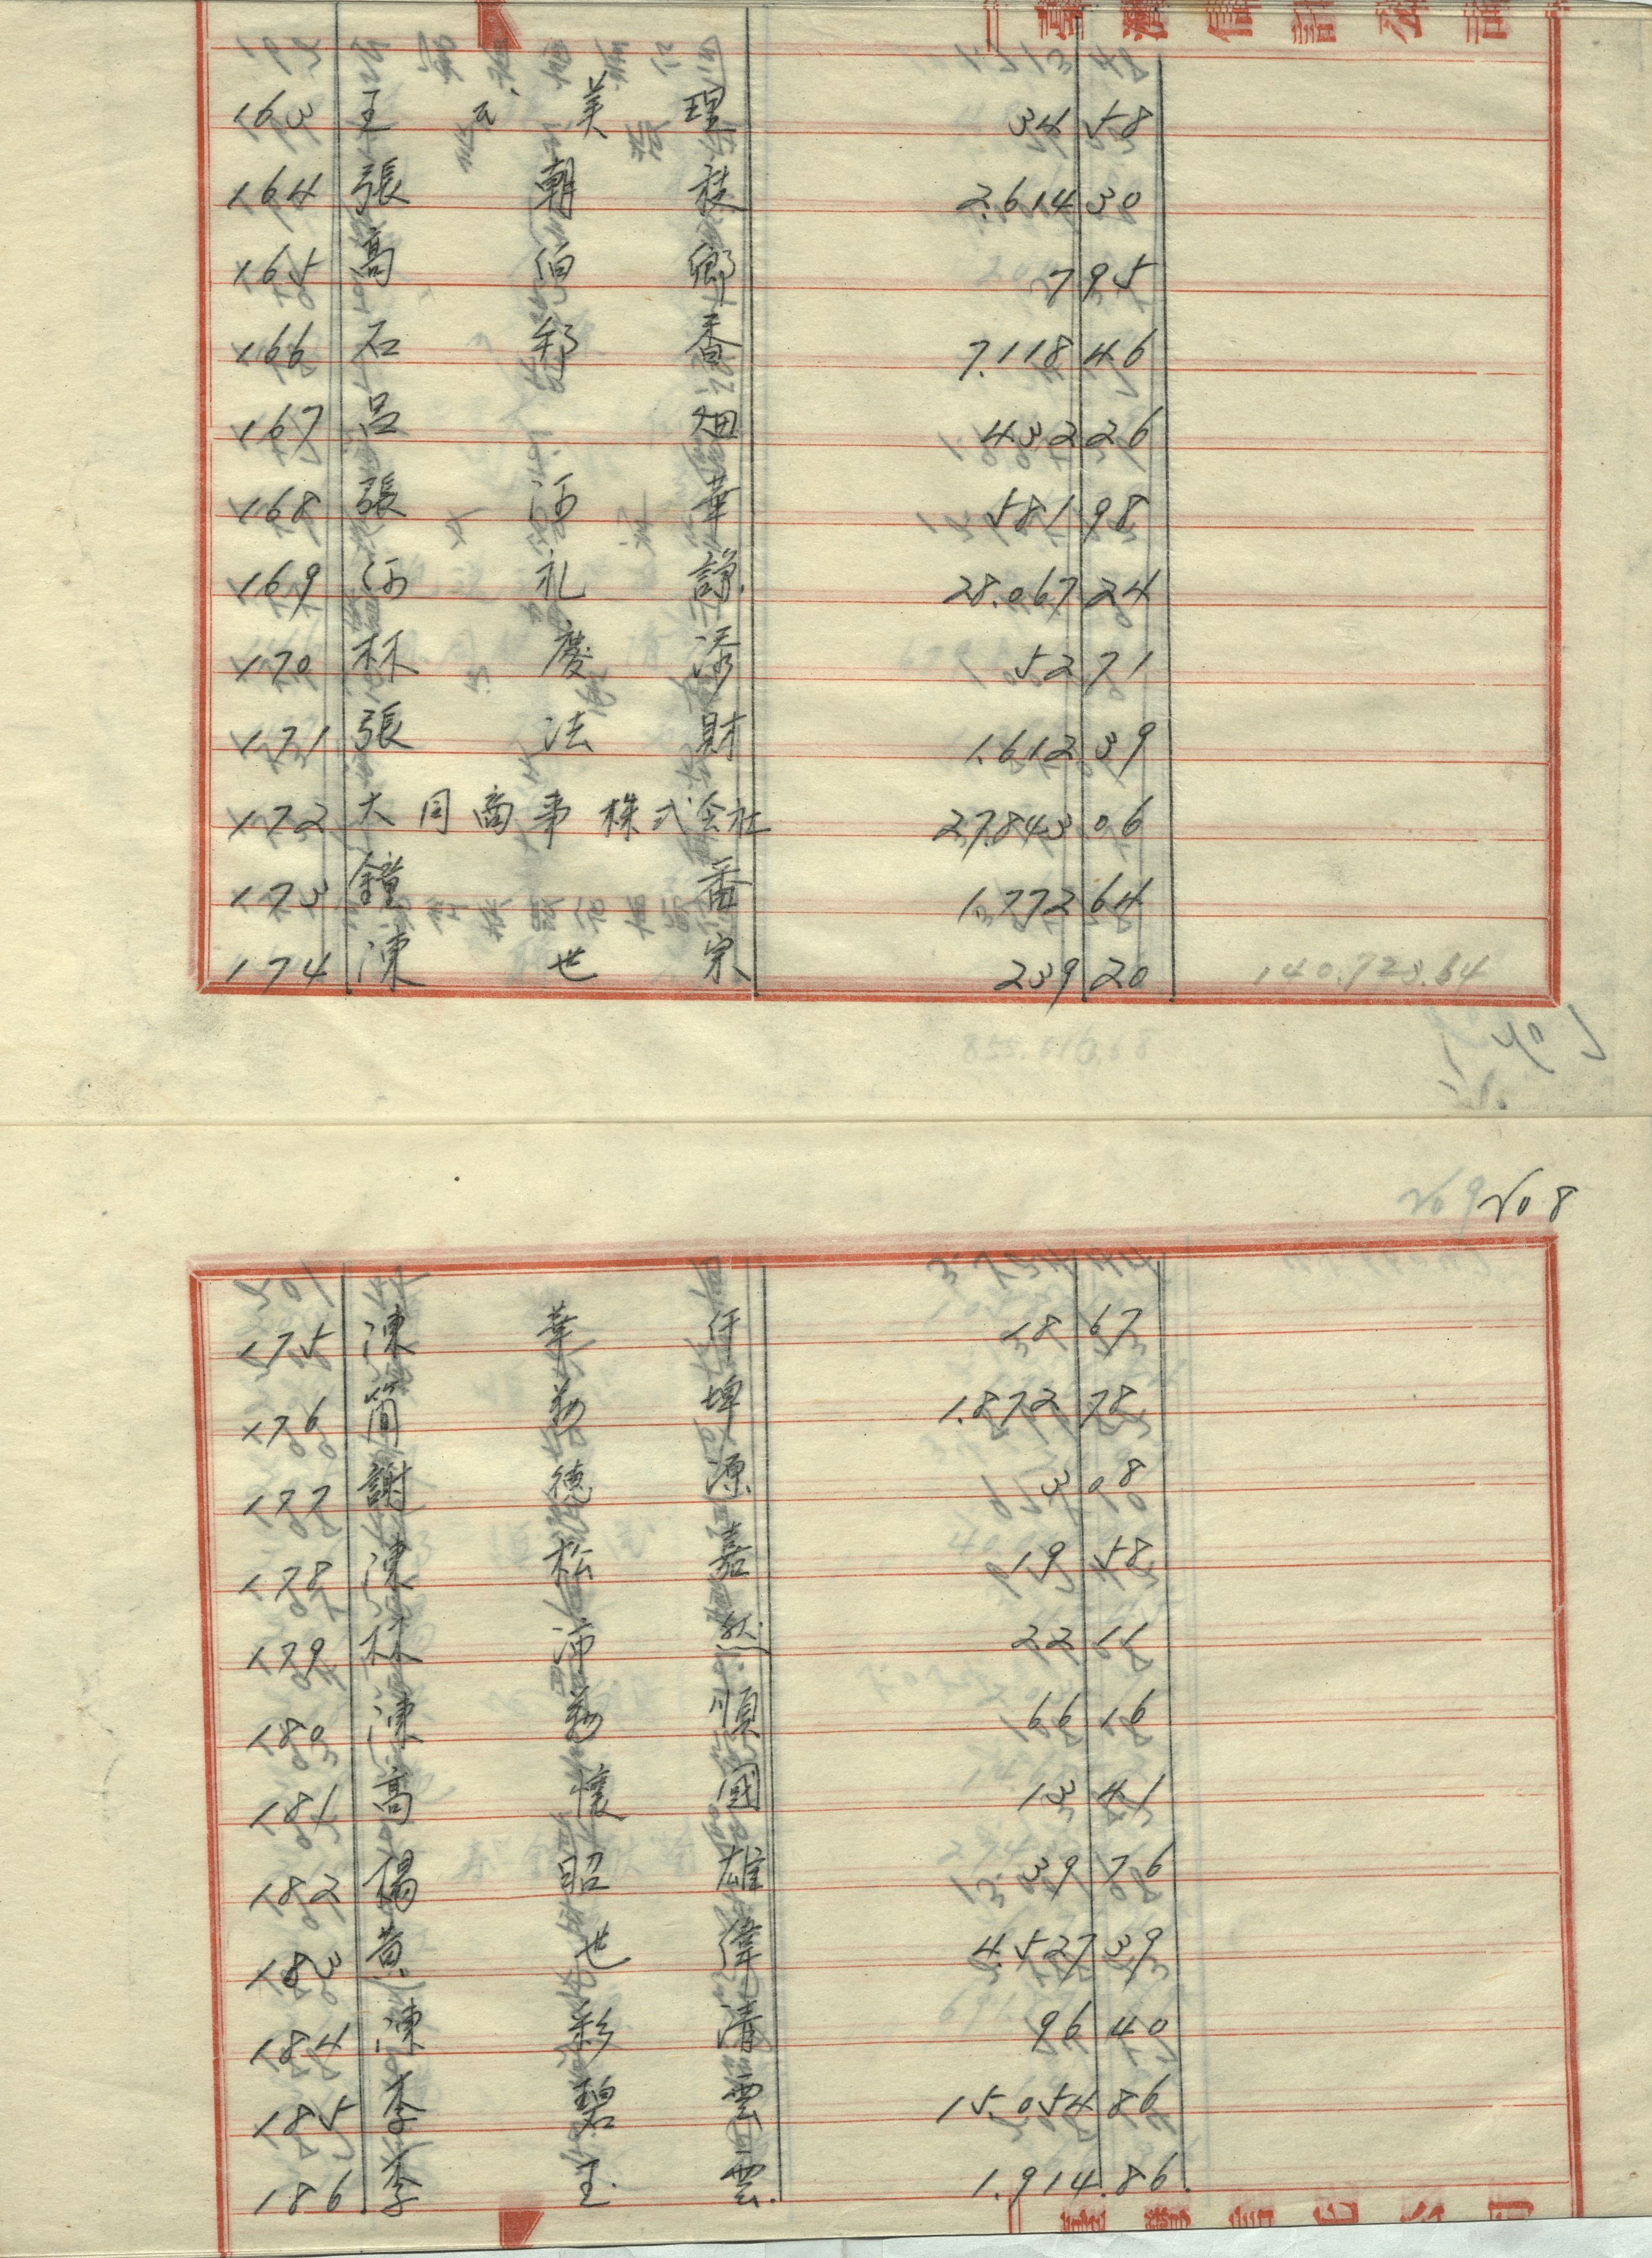 163 王 氏 美 理 34 58
164 張 朝 枝 2.614 30
165 高 伯 鄉 7 95
166 石 秋 香 7.118 46
167 呂 畑 432 26
168 張 添 華 581 98
169 添 礼 諍 28.067 24
170 林 慶 添 52 71
171 張 法 財 1.612 39
172 大同商事株式会社 27.843 06
173 鐘 番 1.772 64
174 陳 世 宗 239 20 140.723.64
855.616.68
No 8
175 陳 華 仔 18 67
176 簡 勤 埤 1.872 78
177 謝 德 源 3 08
178 陳 松 嘉 19 58
179 林 沛 然 22 11
180 陳 勤 順 66 16
181 高 懷 國 13 41
182 楊 昭 雄 39 76
183 黃 世 偉 4.527 39
184 陳 彩 清 96 40
185 李 碧 雲 15.054 86
186 李 玉 雲 1.914.86